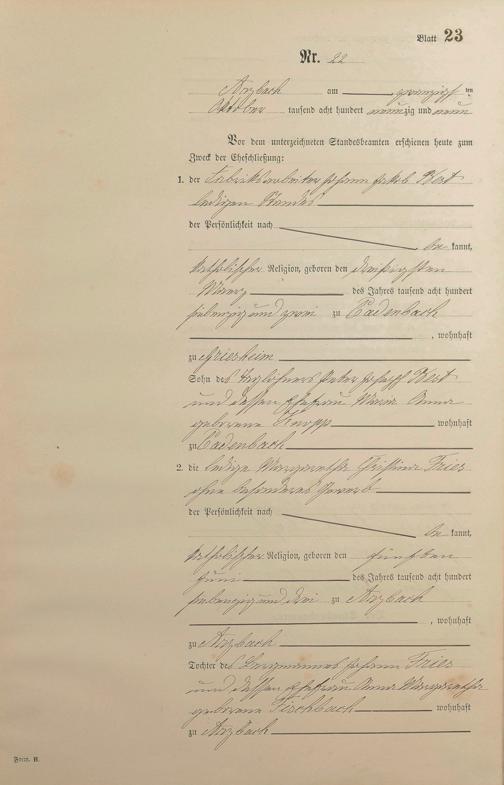 Blatt 23
Nr. 22
Arzbach am zwanzigsten
Oktober tausend acht hundert neunzig und neun
Vor dem unterzeichneten Standesbeamten erschienen heute zum
Zweck der Eheschließung:
1. der Fabrikarbeiter Johann Jakob
ledigen Standes
der Persönlichkeit nach
be kannt,
katholischer Religion, geboren den dreißigsten
März des Jahres tausend acht hundert
siebenzig und zwei zu Cadenbach
, wohnhaft
zu Griesheim
Sohn des Taglöhners Peter Joseph
und dessen Ehefrau Maria Anna
geborene Knopp wohnhaft
zu Cadenbach
2. die ledige Margaretha Christina Fries
ohne besonderes Gewerb
der Persönlichkeit nach
be kannt,
katholischer Religion, geboren den fünften
Juni des Jahres tausend acht hundert
siebenzig und drei zu Arzbach
, wohnhaft
zu Arzbach
Tochter des Bergmannes Johann Fries
und dessen Ehefrau Anna Margaretha
geborene Fischbach wohnhaft
zu Arzbach
Form. B.